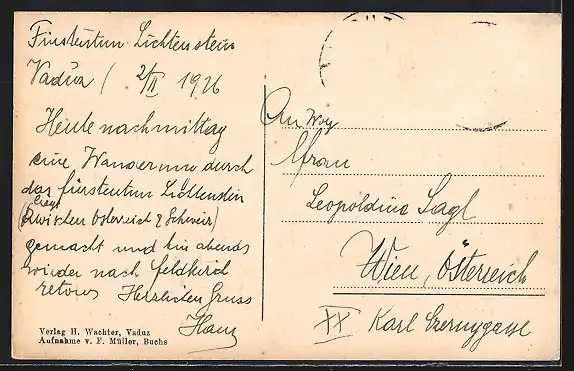 Fürstentum Lichtenstein
Vaduz / 2/II 1926
Heute nachmittag
eine Wanderung durch
das fürstentum Lichtenstein
(liegt zwischen Österreich & Schweiz)
gemacht und bin abends
wieder nach Feldkirch
retour Herzlichen Gruss
Hans
Verlag H. Wachter, Vaduz
Aufnahme v. F. Müller, Buchs
An
Frau
Leopoldine Sagl
Wien, Österreich
XX Karl Czernygasse